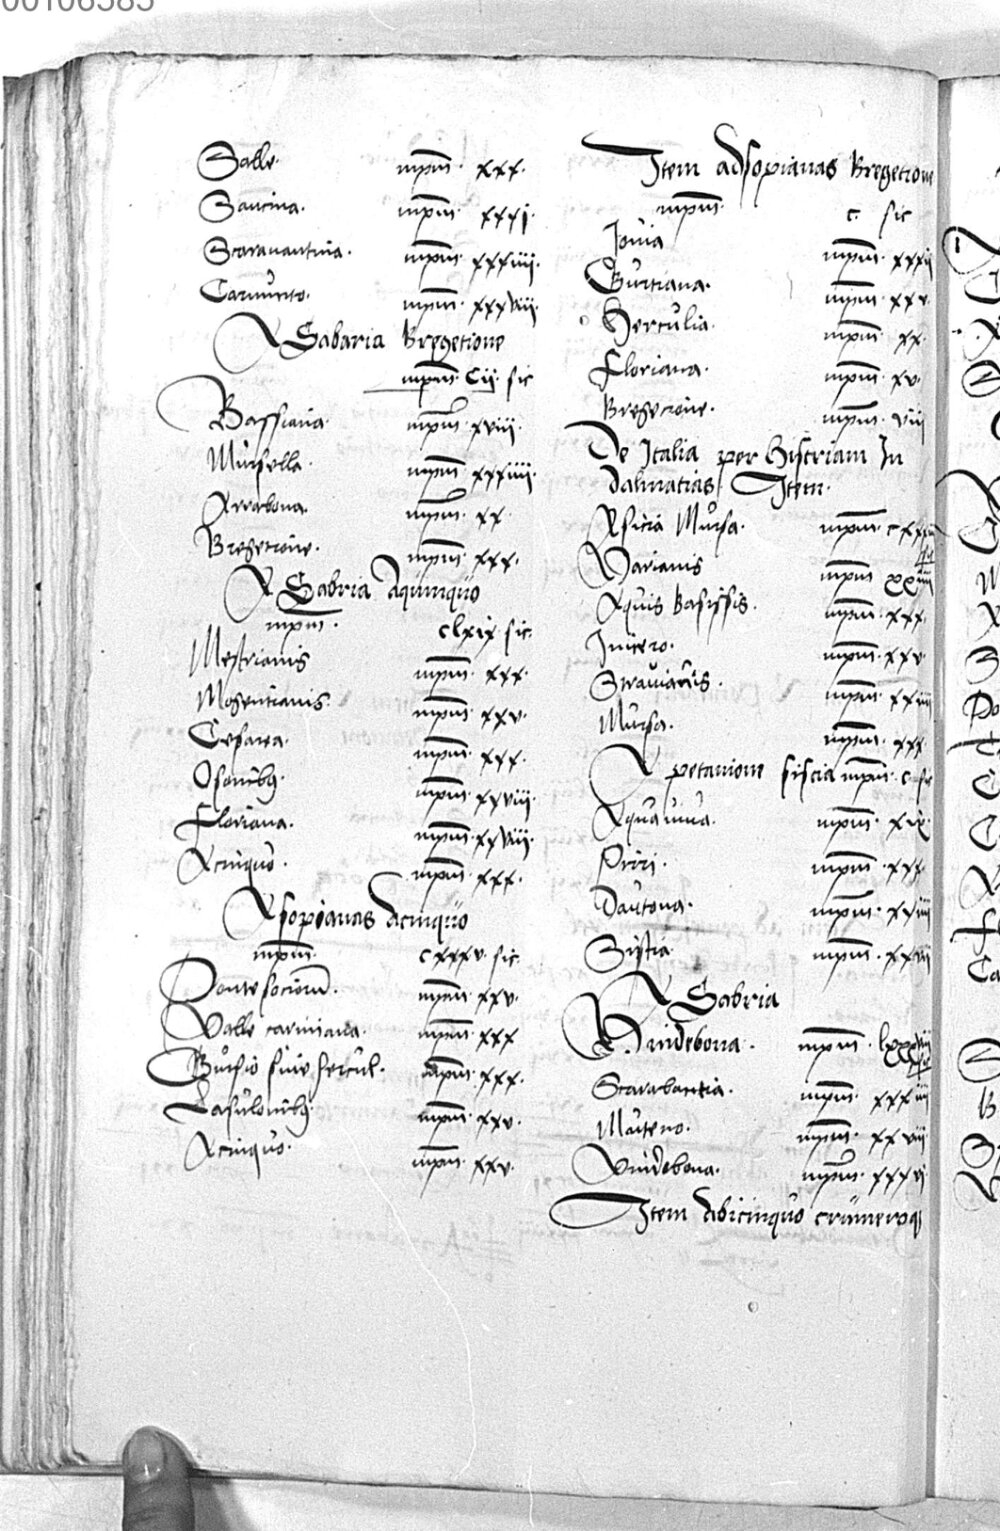 00106385
Salle. mpm. xxx.
Savcina. mpm. xxxj.
Scaravantina. mpm. xxxiiij.
Carnunto. mpm. xxxviij.
A Sabaria Bregetione
mpm. Cij. sic
Bassiana mpm. xviij.
Mursella. mpm. xxxiiij.
Arrabona. mpm. xx.
Bregetione. mpm. xxx.
A Sabria Aquinquo
mpm. clxix sic.
Mestrianis mpm. xxx.
Mogentianis. mpm. xxv.
Cesarea. mpm. xxx.
Osonibus. mpm. xxviij.
Floriana. mpm. xxviij.
Acinquo. mpm. xxx.
A sopianas Acinquo
mpm. cxxxv. sic.
Ponte sociorum. mpm. xxv.
Valle cariniana. mpm. xxx
Gursio sive hercul. mpm. xxx.
Iasulonibus. mpm. xxv.
Acinquo. mpm. xxv.
Item adsopianas Bregetione
mpm. c. sic
Iovia mpm. xxxij
Gurtiana. mpm. xxv.
Herculia. mpm. xx.
Floriana. mpm. xv.
Bregecione. mpm. viij
De Italia per Histriam In
dalmatias Item.
A sicia Mursa. mpm
Varianis mpm xxiiij
Aquis basissis. mpm. xxx.
Inicero. mpm. xxv.
Stravianis. mpm. xxiiij
Mursa. mpm. xxx.
A petavione siscia mpm. c. sic
Aqua viva. mpm. xix.
Pirri. mpm. xxx.
Dautona. mpm. xxiiij
Siscia mpm. xxvij
A Sabria
Vindebona. mpm.
Scarabantia. mpm. xxxiiij
Muteno. mpm. xxviij
Vindebona. mpm. xxxvj
Item Abicinquo crumeroq